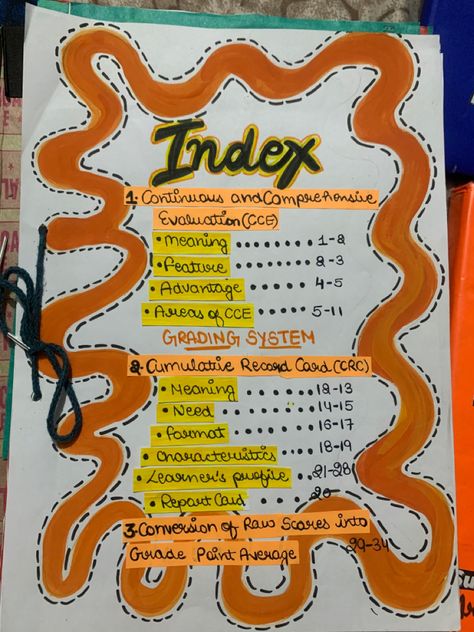 Index
1. Continuous and Comprehensive
Evaluation (CCE)
• Meaning ........ 1-2
• Feature ........ 2-3
• Advantage ...... 4-5
• Areas of CCE ...... 5-11
GRADING SYSTEM
2. Cumulative Record Card (CRC)
• Meaning ...... 12-13
• Need ........ 14-15
• Format ....... 16-17
• Characteristics ..... 18-19
• Learner's profile .. 21-28
• Report Card .... 20
3. Conversion of Raw Scores into
Grade Point Average 29-34